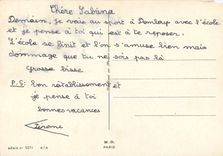 Chère Sabine
Demain, je vais au sport à et
je pense à toi qui est à te reposer.
L'école se finit et l'on s'amuse bien mais
dommage que tu ne sois pas là
Grosse bise
P.S: bon rétablissement et
je pense à toi
bonnes vacances
Jérome
M.D.
PARIS